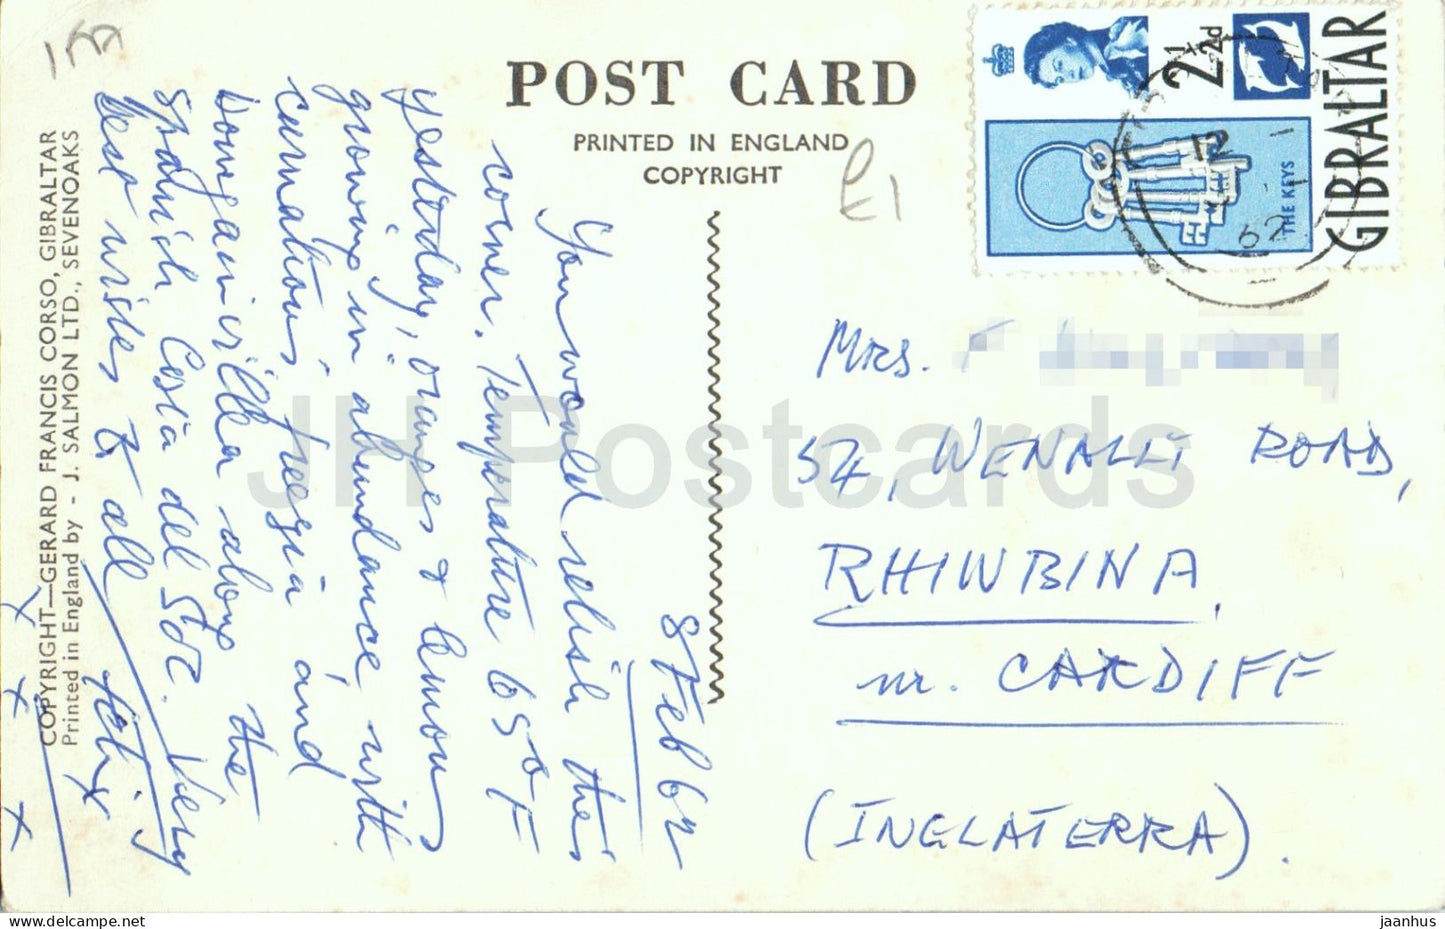 POST CARD
PRINTED IN ENGLAND
COPYRIGHT
£1
2½d
GIBRALTAR
THE KEYS
12
62
8 Feb 62
You would relish this
corner. Temperature 65°F
yesterday, oranges & lemons
growing in abundance with
carnations, freesia and
Bougainvillea along the
Spanish Costa del Sol. Very
best wishes to all
Felix
x
x
x
COPYRIGHT—GERARD FRANCIS CORSO, GIBRALTAR
Printed in England by - J. SALMON LTD., SEVENOAKS
MRS.
54, WENALLT ROAD,
RHIWBINA,
nr. CARDIFF
(INGLATERRA).
JH Postcards
www.delcampe.net
jaanhus